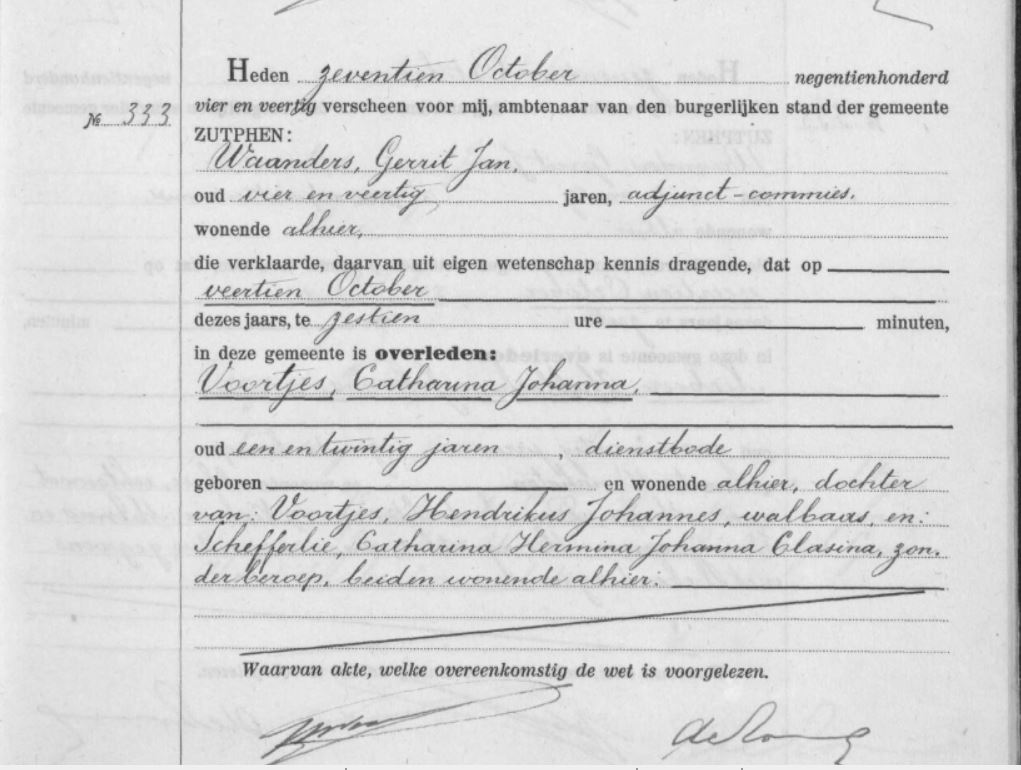 Heden zeventien October negentienhonderd
№ 333 vier en veertig verscheen voor mij, ambtenaar van den burgerlijken stand der gemeente
ZUTPHEN:
Waanders, Gerrit Jan,
oud vier en veertig jaren, adjunct-commies.
wonende alhier,
die verklaarde, daarvan uit eigen wetenschap kennis dragende, dat op
veertien October
dezes jaars, te zestien ure minuten,
in deze gemeente is overleden:
Voortjes, Catharina Johanna,
oud een en twintig jaren, dienstbode
geboren en wonende alhier, dochter
van: Voortjes, Hendrikus Johannes, walbaas, en:
Schefferlie, Catharina Hermina Johanna Clasina, zon-
der beroep, beiden wonende alhier:
Waarvan akte, welke overeenkomstig de wet is voorgelezen.